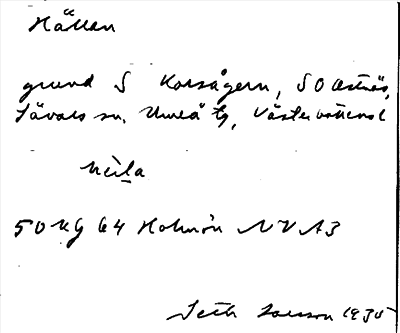 Hällan
grund S Korsågern, SO Ostnäs,
Sävars sn. Umeå tg, Västerbottens l
50 KG 64 Holmön NV A3
Seth Larsson 1935